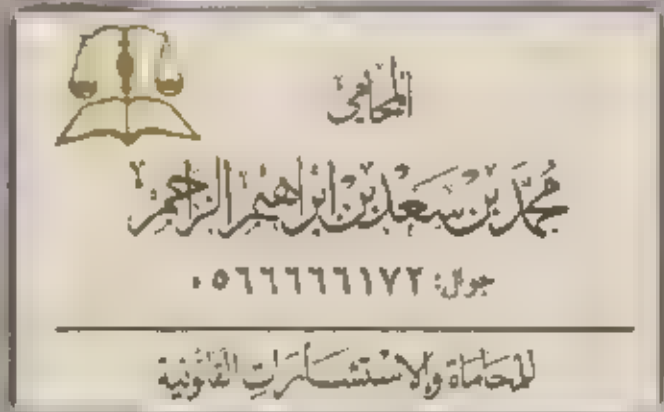 المحامي
محمد بن سعد بن ابراهيم الراجحي
جوال: ٠٥٦٦٦٦٦١٧٢
للمحاماة والاستشارات القانونية